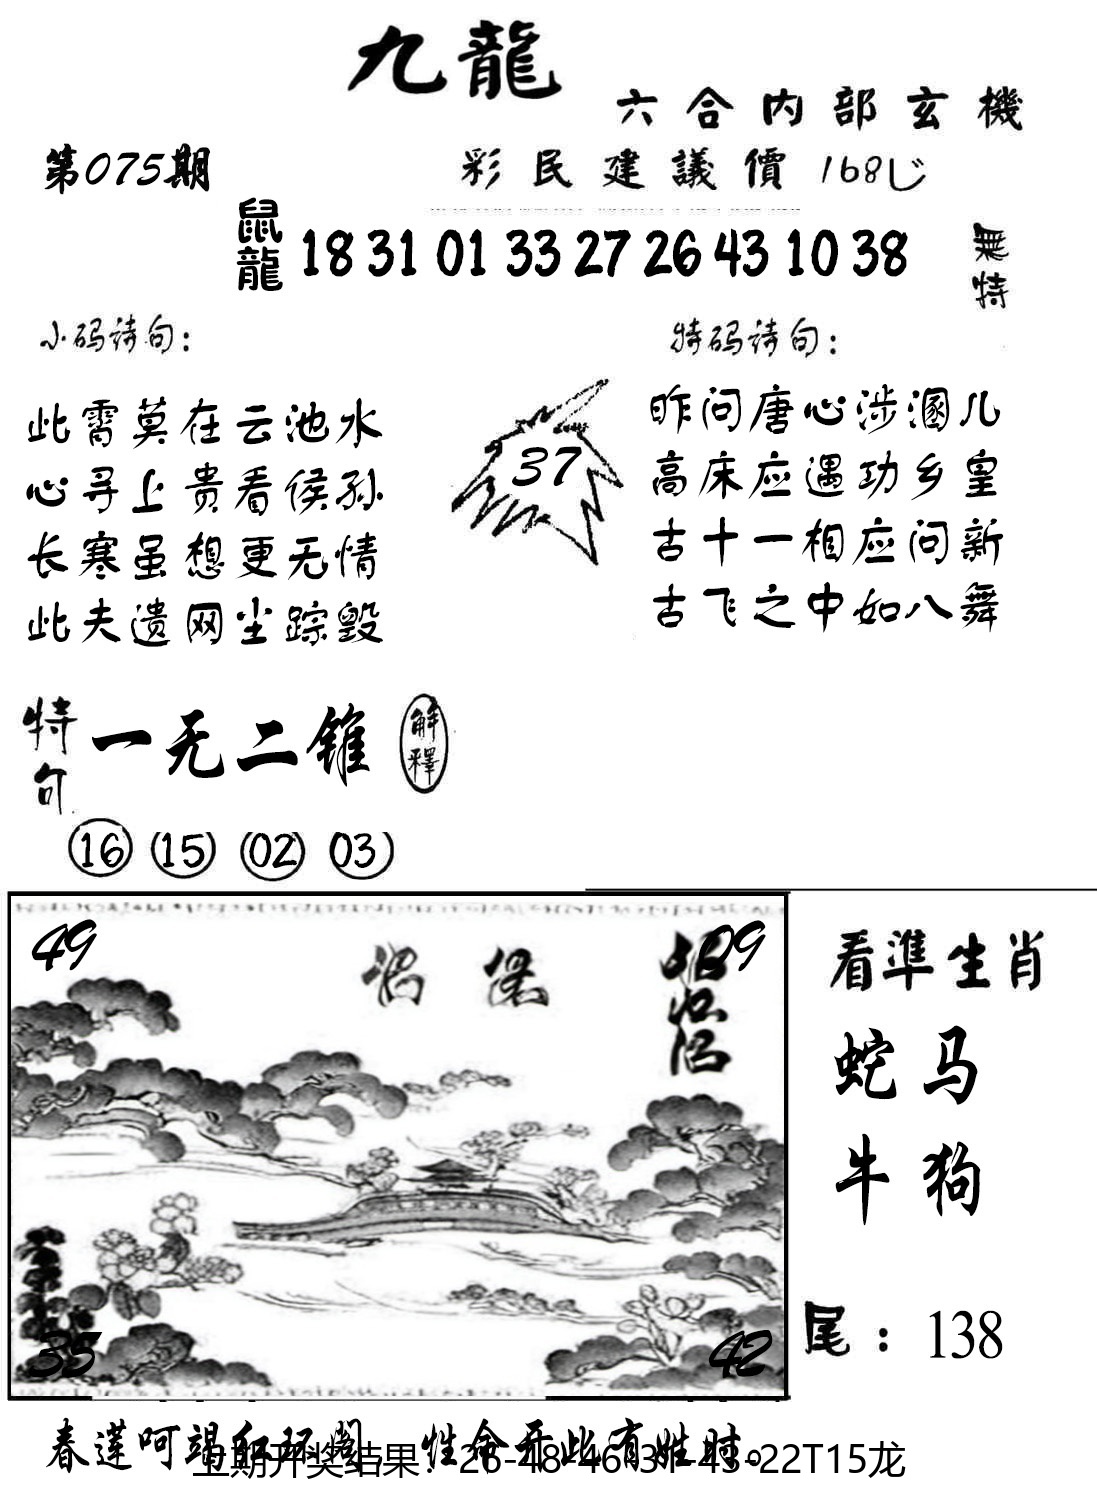 九龍
六合内部玄機
第075期
彩民建議價 168
鼠龍
18 31 01 33 27 26 43 10 38
無特
小码诗句：
特码诗句：
此霄莫在云池水
心寻上贵看侯孙
长寒虽想更无情
此夫遗网尘踪毁
37
昨问唐心涉溷儿
高床应遇功乡皇
古十一相应问新
古飞之中如八舞
特句
一无二锥
解釋
16 15 02 03
49
09
35
42
看準生肖
蛇马
牛狗
尾：138
春莲呵竭红环阁 性命开此有姓时。
上期开奖结果：26-48-46-31-43-22T15龙